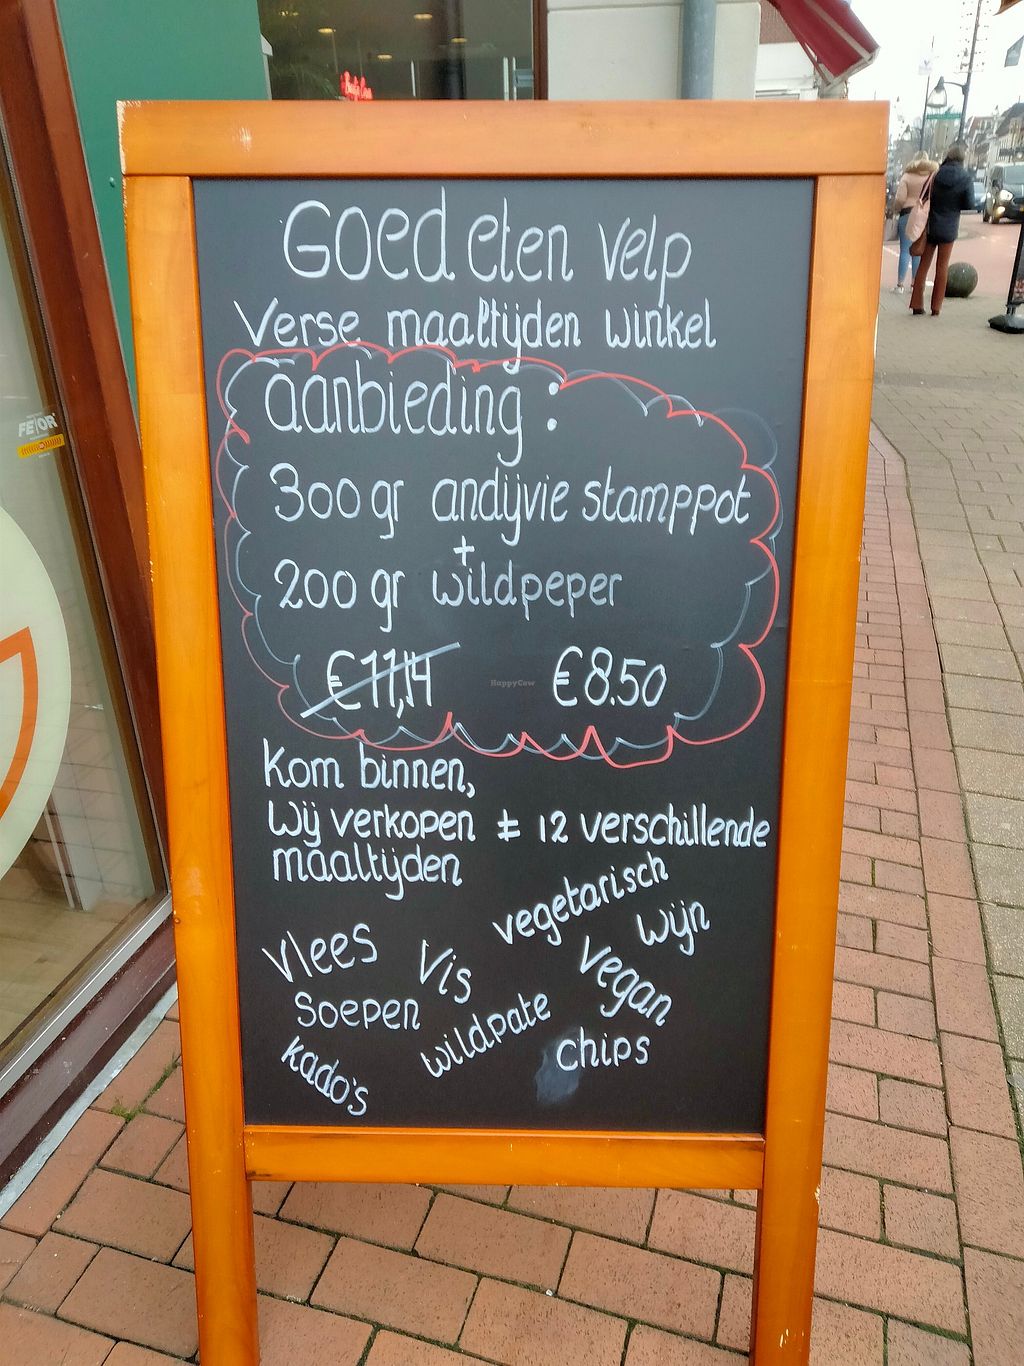 Goed eten Velp
Verse maaltijden winkel
aanbieding :
300 gr andijvie stamppot
+
200 gr wildpeper
€11,14 €8.50
Kom binnen,
Wij verkopen ± 12 verschillende
maaltijden
vegetarisch
wijn
vlees
Vis
Vegan
soepen
wildpate
chips
kado's
HappyCow
FE/OR